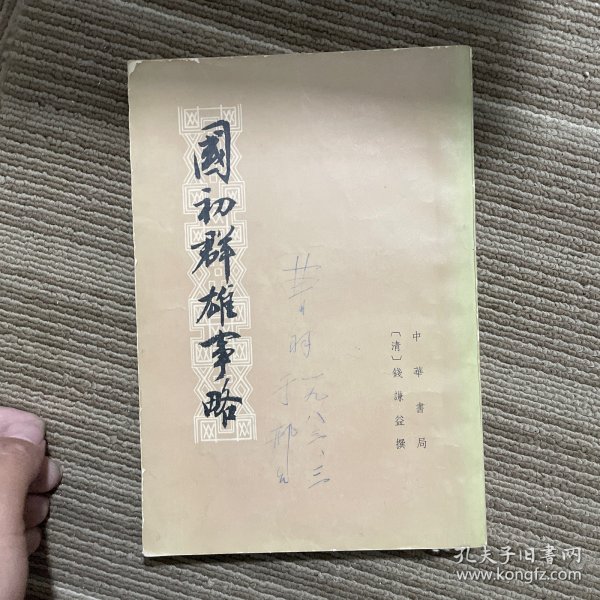 國初群雄事略
中華書局
〔清〕錢謙益撰
一九八三、三
于
孔夫子旧书网
www.kongfz.com